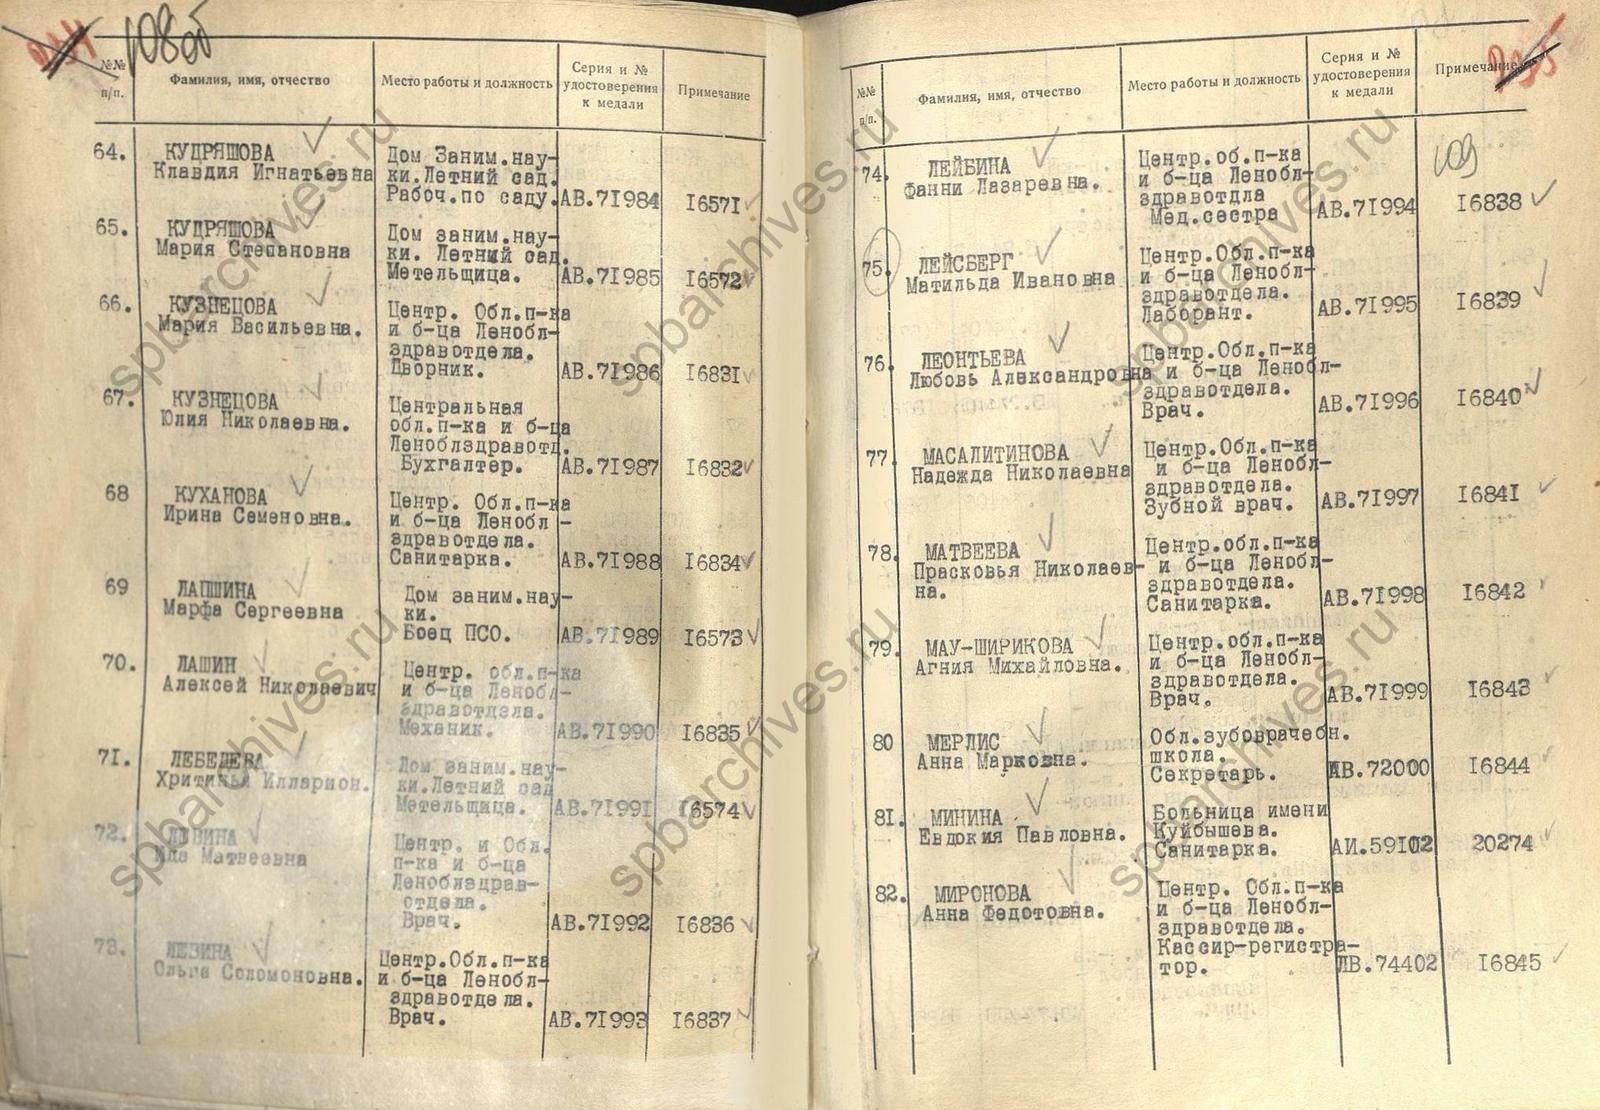 108об
№№
п/п.
Фамилия, имя, отчество
Место работы и должность
Серия и №
удостоверения
к медали
Примечание
64.
КУДРЯШОВА
Клавдия Игнатьевна
Дом Заним.нау-
ки.Летний сад.
Рабоч.по саду.
АВ.7I984
I657I
65.
КУДРЯШОВА
Мария Степановна
Дом заним.нау-
ки. Летний сад.
Метельщица.
АВ.7I985
I6572
66.
КУЗНЕЦОВА
Мария Васильевна.
Центр. Обл.п-ка
и б-ца Ленобл-
здравотдела.
Дворник.
АВ.7I986
I683I
67.
КУЗНЕЦОВА
Юлия Николаевна.
Центральная
обл.п-ка и б-ца
Леноблздравотд.
Бухгалтер.
АВ.7I987
I6832
68
КУХАНОВА
Ирина Семеновна.
Центр. Обл.п-ка
и б-ца Ленобл -
здравотдела.
Санитарка.
АВ.7I988
I6834
69
ЛАПШИНА
Марфа Сергеевна
Дом заним.нау-
ки.
Боец ПСО.
АВ.7I989
I6573
70.
ЛАШИН
Алексей Николаевич
Центр. обл.п-ка
и б-ца Ленобл-
здравотдела.
Механик.
АВ.7I990
I6835
7I.
ЛЕБЕДЕВА
Илларион.
Дом заним.нау-
ки.Летний сад
Метельщица.
АВ.7I99I
I6574
72.
ЛЕВИНА
Ида Матвеевна
Центр. и Обл.
п-ка и б-ца
Леноблздрав-
отдела.
Врач.
АВ.7I992
I6836
73.
ЛЕВИНА
Ольга Соломоновна.
Центр.Обл.п-ка
и б-ца Ленобл-
здравотдела.
Врач.
АВ.7I993
I6837
№№
п/п.
Фамилия, имя, отчество
Место работы и должность
Серия и №
удостоверения
к медали
Примечание
109
74.
ЛЕЙБИНА
Фанни Лазаревна.
Центр.об.п-ка
и б-ца Ленобл-
здравотдла
Мед.сестра
АВ.7I994
I6838
75.
ЛЕЙСБЕРГ
Матильда Ивановна
Центр.Обл.п-ка
и б-ца Ленобл-
здравотдела.
Лаборант.
АВ.7I995
I6839
76.
ЛЕОНТЬЕВА
Любовь Александровна
Центр.Обл.п-ка
и б-ца Ленобл-
здравотдела.
Врач.
АВ.7I996
I6840
77.
МАСАЛИТИНОВА
Надежда Николаевна
Центр.Обл.п-ка
и б-ца Ленобл-
здравотдела.
Зубной врач.
АВ.7I997
I684I
78.
МАТВЕЕВА
Прасковья Николаев-
на.
Центр.обл.п-ка
и б-ца Ленобл-
здравотдела.
Санитарка.
АВ.7I998
I6842
79.
МАУ-ШИРИКОВА
Агния Михайловна.
Центр.обл.п-ка
и б-ца Ленобл-
здравотдела.
Врач.
АВ.7I999
I6843
80
МЕРЛИС
Анна Марковна.
Обл.зубоврачебн.
школа.
Секретарь.
АВ.72000
I6844
8I.
МИНИНА
Евдокия Павловна.
Больница имени
Куйбышева.
Санитарка.
АИ.59I02
20274
82.
МИРОНОВА
Анна Федотовна.
Центр. Обл.п-ка
и б-ца Ленобл-
здравотдела.
Кассир-регистра-
тор.
ЛВ.74402
I6845
spbarchives.ru
spbarchives.ru
spbarchives.ru
spbarchives.ru
spbarchives.ru
spbarchives.ru